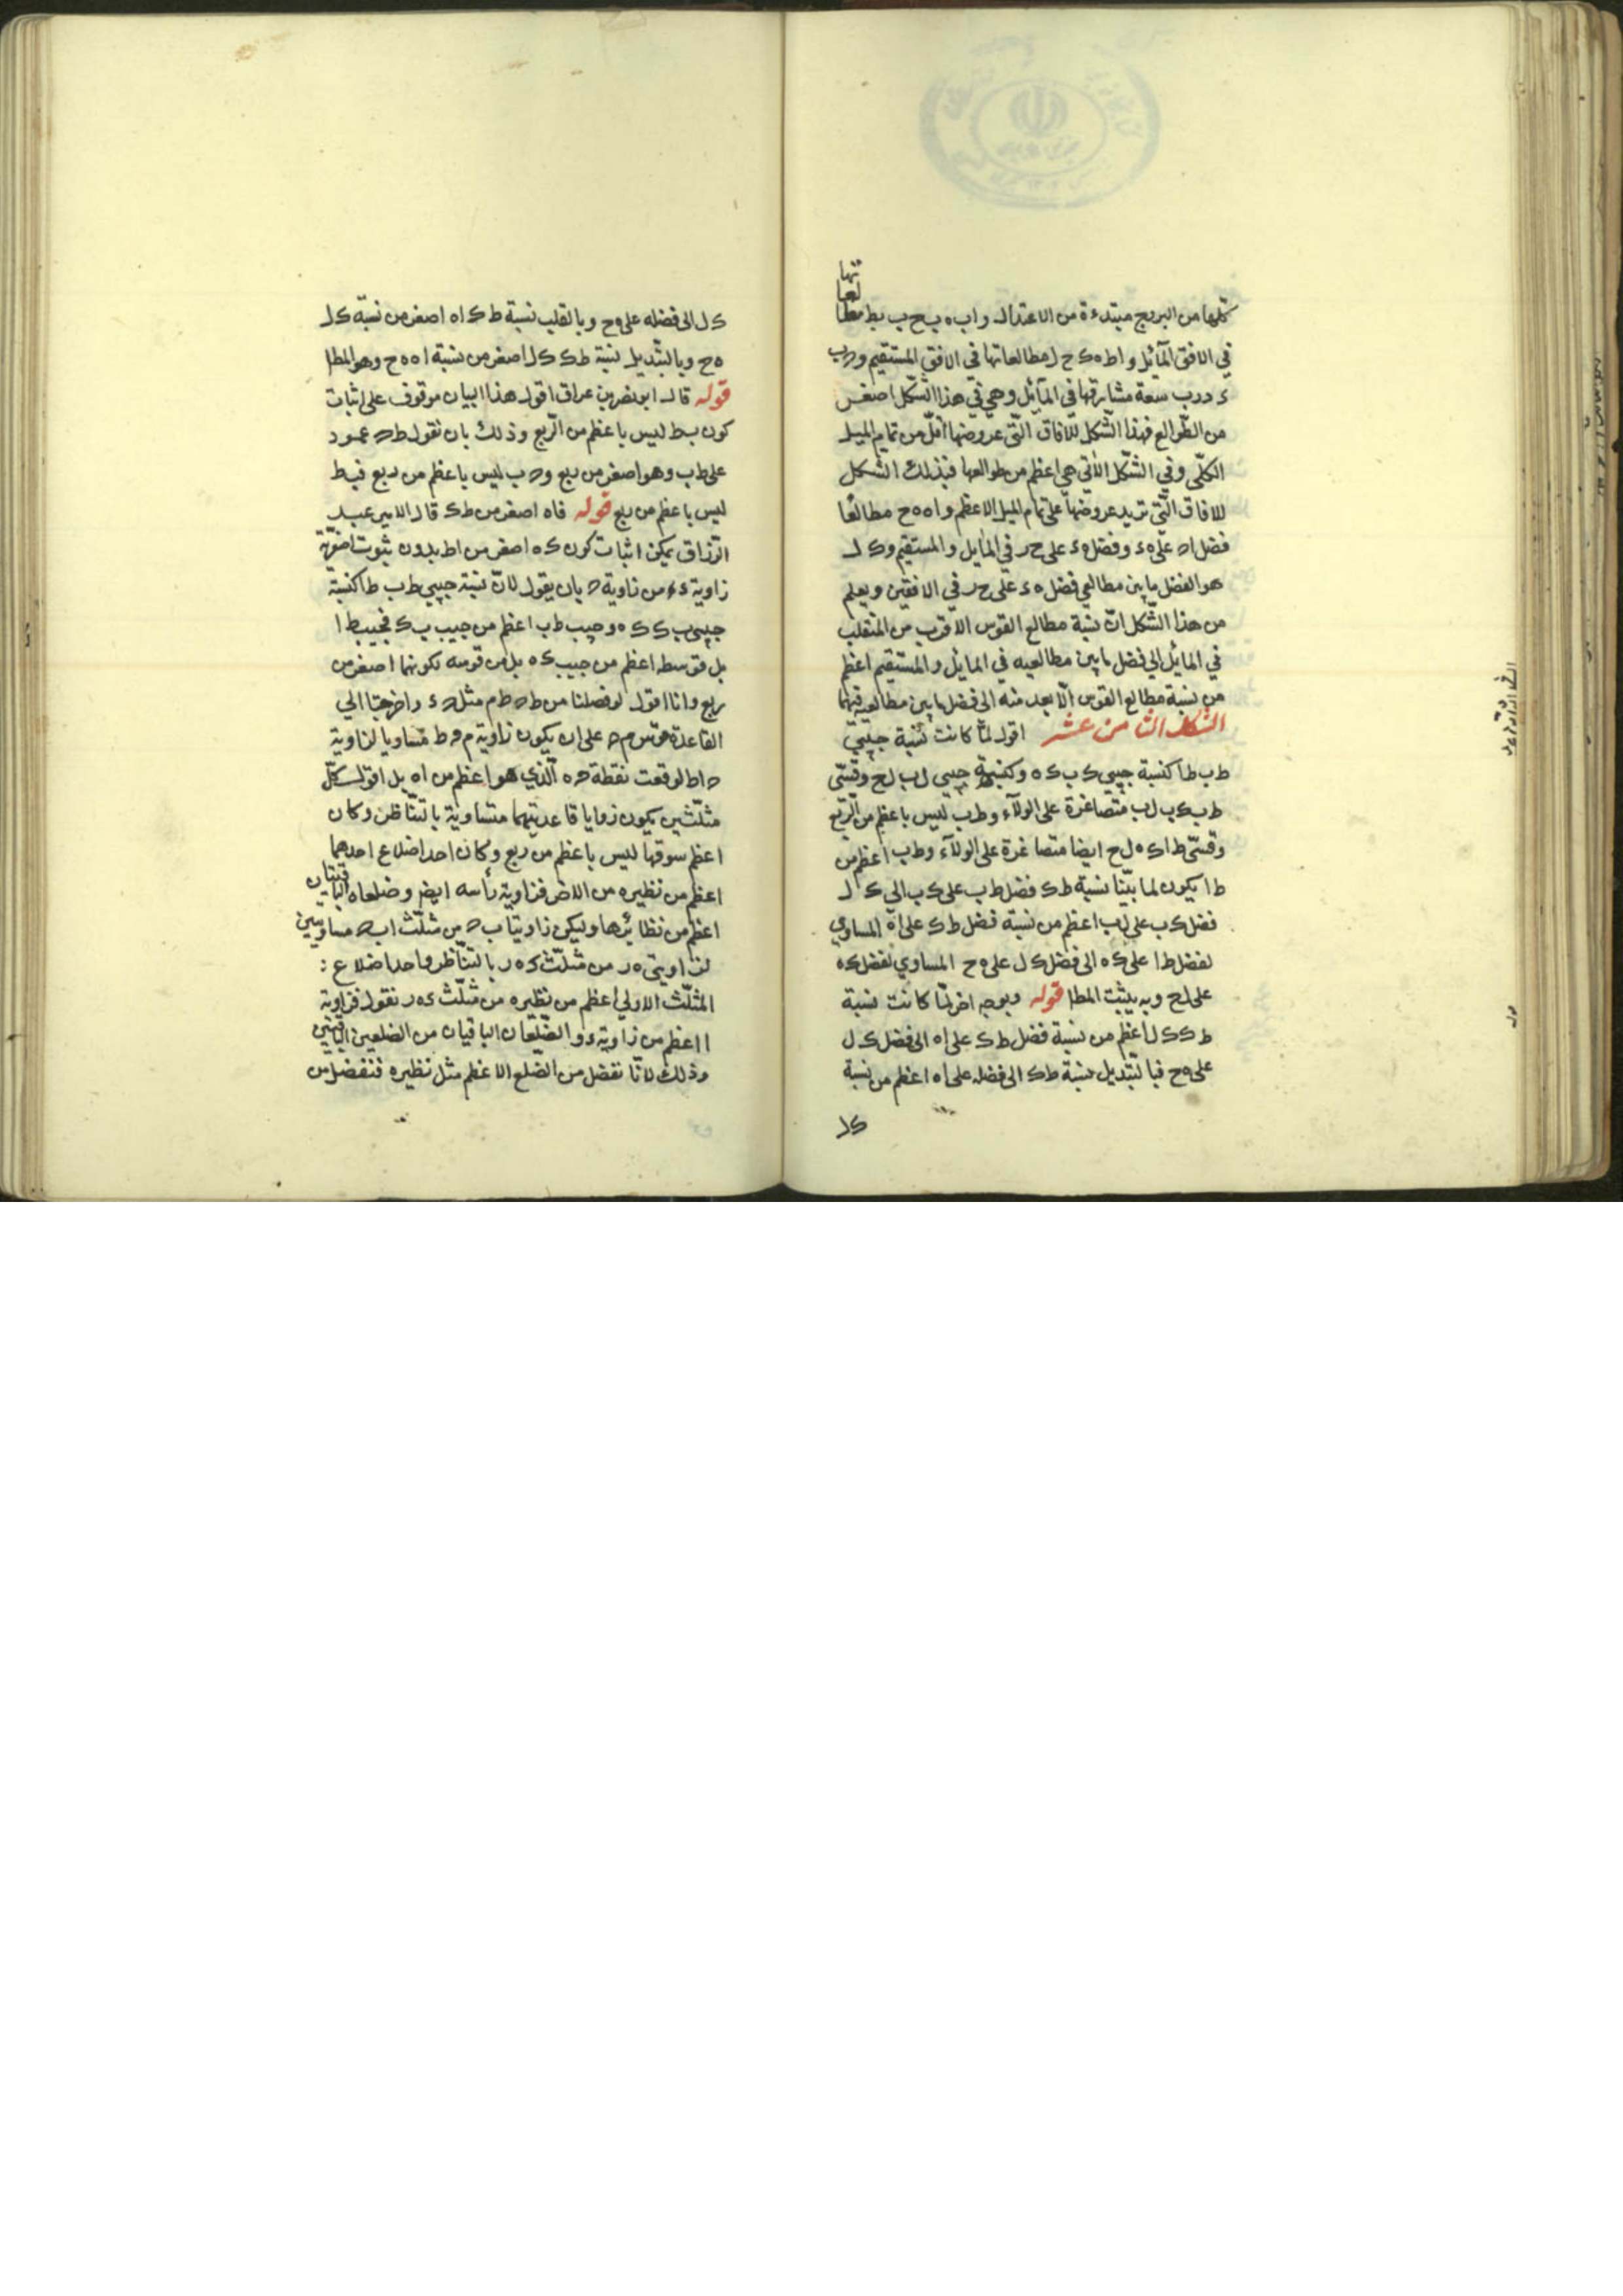 كلها من البروج مبتدءة من الاعتدال و اب ه ب ح ب ب ط مطالعاتها
في الافق المآئل و اط ه ك ح ل مطالعاتها في الافق المستقيم و ح ب
ء ب ر ب سعة مشارقها في المآئل و هي في هذا الشّكل اصغر
من الطّوالع فهذا الشّكل للآفاق الّتي عروضها اقلّ من تمام الميل
الكلّي و في الشّكل الاٰتي هي اعظم من طوالعها فبذلك الشّكل
للافاق الّتي تزيد عروضها على تمام الميل الاعظم و ا ه ه ح مطالعا
فضل ا ح على ح ء و فضل ح ء على ح ر في المايل و المستقيم و ك ل
هو الفضل ما بين مطالعي فضل ح ء على ح ر في الافقين و يعلم
من هذا الشّكل انّ نسبة مطالع القوس الاقرب من المنقلب
في المائل الى فضل ما بين مطالعيه في المائل و المستقيم اعظم
من نسبة مطالع القوس الابعد منه الى فضل ما بين مطالعيه فيهما
الشكل الثامن عشر اقول لمّا كانت نسبة جيبي
ط ب ط ا كنسبة جيبي ك ب ك ه و كنسبة جيبي ل ب ل ح و قسيّ
ط ب ك ب ل ب متصاغرة على الولآء و ط ب ليس باعظم من الرّبع
و قسيّ ط ا ك ه ل ح ايضا متصاغرة على الولآء و ط ب اعظم من
ط ا يكون لما بيّنا نسبة ط ك فضل ط ب على ك ب الى ك ل
فضل ك ب على ل ب اعظم من نسبة فضل ط ك على ا ه المساوي
لفضل ط ا على ك ه الى فضل ك ل على ه ح المساوي لفضل ك ه
على ل ح و به يثبت المطا قوله و بوجه اخر لمّا كانت نسبة
ط ك ك ل اعظم من نسبة فضل ط ك على ا ه الى فضل ك ل
على ه ح فبالتّبديل نسبة ط ك الى فضله على ا ه اعظم من نسبة
ك ل
ك ل الى فضله على ه ح و بالقلب نسبة ط ك ا ه اصغر من نسبة ك ل
ه ح و بالتّبديل نسبة ط ك ك ل اصغر من نسبة ا ه ه ح و هو المطا
قوله قال ابو نصر بن عراق اقول هذا البيان موقوف على اثبات
كون ب ط ليس باعظم من الرّبع و ذلك بان نقول ط ح عمود
على ط ب و هو اصغر من ربع و ح ب ليس باعظم من ربع فب ط
ليس باعظم من ربع قوله فاه اصغر من ط ك قال الامير عبد
الرّزاق يمكن اثبات كون ك ه اصغر من اط بدون ثبوت اصغريّة
زاوية ء من زاوية ح بان يقول لانّ نسبة جيبي ط ب ط ا كنسبة
جيبي ب ك ك ه و جيب ط ب اعظم من جيب ب ك فجيب ط ا
بل قوسه اعظم من جيب ك ه بل من قوسه لكونهما اصغر من
ربع و انا اقول لو فصلنا من ط ح ط م مثل ح ء و اخرجنا الى
القاعدة قوس م ه على ان يكون زاوية م ه ط مساويا لزاوية
ح اط لوقعت نقطة ه الّذي هو اعظم من ا ه بل اقول كلّ
مثلّثين يكون زوايا قاعدتيهما متساوية بالتّناظر و كان
اعظم سوقها ليس باعظم من ربع و كان احد اضلاع احدهما
اعظم من نظيره من الاخر فزاوية رأسه ايضا و ضلعاه الباقيتان
اعظم من نظائرها و ليكن زاويتا ب ح من مثلّث اب ح مساويتين
لزاويتي ه ر من مثلّث ء ه ر بالتّناظر و احد اضلاع :
المثلّث الاولى اعظم من نظيره من مثلّث ء ه ر نقول فزاوية
ا اعظم من زاوية ء و الضّلعان الباقيان من الضلعين الباقيين
و ذلك لانّا نفصل من الضّلع الاعظم مثل نظيره فنفصل من